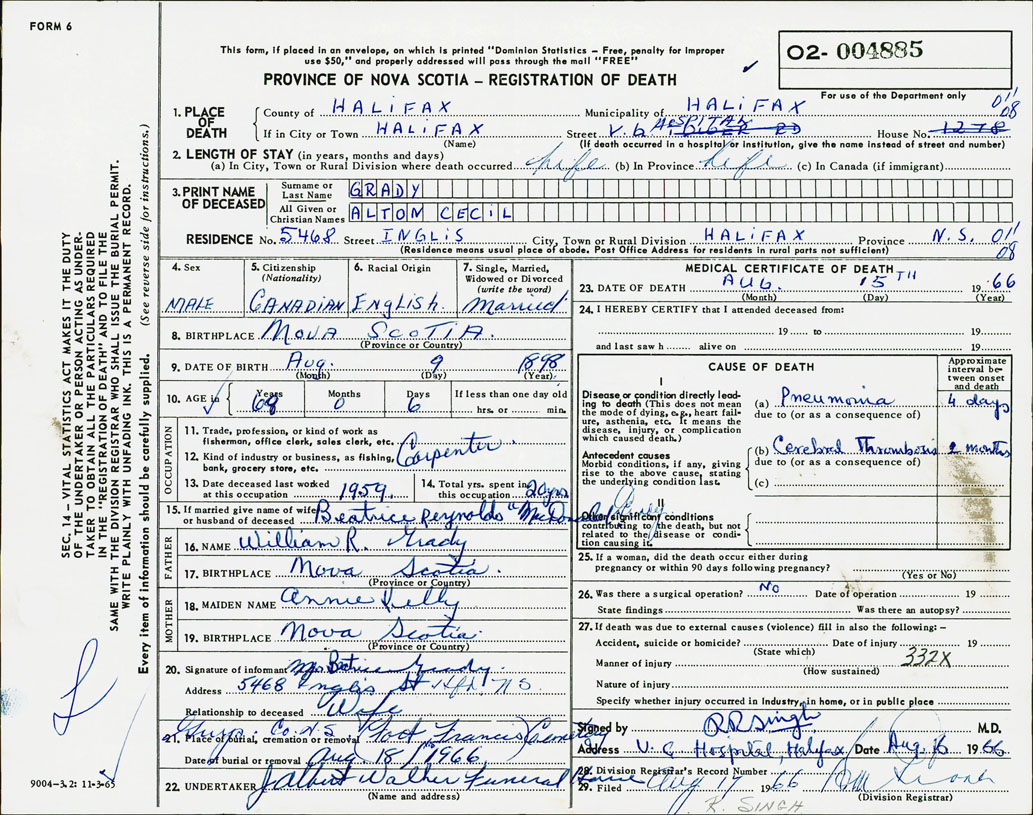 FORM 6
This form, if placed in an envelope, on which is printed "Dominion Statistics – Free, penalty for improper
use $50," and properly addressed will pass through the mail "FREE"
O2- 004885
PROVINCE OF NOVA SCOTIA – REGISTRATION OF DEATH
For use of the Department only
1. PLACE OF DEATH
County of HALIFAX Municipality of HALIFAX 011 08
If in City or Town HALIFAX Street V.G. HOSPITAL House No. 1278
(Name) (If death occurred in a hospital or institution, give the name instead of street and number)
2. LENGTH OF STAY (in years, months and days)
(a) In City, Town or Rural Division where death occurred life (b) In Province life (c) In Canada (if immigrant)
3. PRINT NAME OF DECEASED
Surname or Last Name GRADY
All Given or Christian Names ALTON CECIL
RESIDENCE No. 5468 Street INGLIS City, Town or Rural Division HALIFAX Province N.S. 011 08
(Residence means usual place of abode. Post Office Address for residents in rural parts not sufficient)
4. Sex
MALE
5. Citizenship (Nationality)
CANADIAN
6. Racial Origin
English.
7. Single, Married, Widowed or Divorced (write the word)
Married
8. BIRTHPLACE NOVA SCOTIA.
(Province or Country)
9. DATE OF BIRTH Aug. 9 1898
(Month) (Day) (Year)
10. AGE in Years 68 Months 0 Days 6 If less than one day old
hrs. or min.
OCCUPATION
11. Trade, profession, or kind of work as
fisherman, office clerk, sales clerk, etc. Carpenter
12. Kind of industry or business, as fishing,
bank, grocery store, etc.
13. Date deceased last worked
at this occupation 1959
14. Total yrs. spent in
this occupation 20 yrs
15. If married give name of wife
or husband of deceased Beatrice Reynolds
FATHER
16. NAME William R. Grady
17. BIRTHPLACE Nova Scotia.
(Province or Country)
MOTHER
18. MAIDEN NAME Annie Kelly
19. BIRTHPLACE Nova Scotia.
(Province or Country)
20. Signature of informant Mrs Beatrice Grady.
Address 5468 Inglis St Hfx N S.
Relationship to deceased Wife
21. Place of burial, cremation or removal Guysp. Co. N.S. Port Francis Cemetery
Date of burial or removal Aug. 18 1966
22. UNDERTAKER J Albert Walker Funeral Home
(Name and address)
MEDICAL CERTIFICATE OF DEATH
23. DATE OF DEATH AUG. 15TH 19 66
(Month) (Day) (Year)
24. I HEREBY CERTIFY that I attended deceased from:
19 to 19
and last saw h alive on 19
CAUSE OF DEATH
Approximate interval between onset and death
I
Disease or condition directly leading to death (This does not mean the mode of dying, e.g., heart failure, asthenia, etc. It means the disease, injury, or complication which caused death.)
(a) Pneumonia 4 days
due to (or as a consequence of)
Antecedent causes
Morbid conditions, if any, giving rise to the above cause, stating the underlying condition last.
(b) Cerebral Thrombosis 2 months
due to (or as a consequence of)
(c)
II
Other significant conditions
contributing to the death, but not related to the disease or condition causing it.
25. If a woman, did the death occur either during
pregnancy or within 90 days following pregnancy?
(Yes or No)
26. Was there a surgical operation? No Date of operation 19
State findings Was there an autopsy?
27. If death was due to external causes (violence) fill in also the following:–
Accident, suicide or homicide? Date of injury 19
(State which)
Manner of injury 332X
(How sustained)
Nature of injury
Specify whether injury occurred in Industry, in home, or in public place
Signed by R R Singh M.D.
Address V. G Hospital, Halifax Date Aug 16 1966
28. Division Registrar's Record Number
29. Filed Aug 17 1966
(Division Registrar)
R. SINGH
SEC. 14 – VITAL STATISTICS ACT MAKES IT THE DUTY
OF THE UNDERTAKER OR PERSON ACTING AS UNDER-
TAKER TO OBTAIN ALL THE PARTICULARS REQUIRED
IN THE "REGISTRATION OF DEATH" AND TO FILE THE
SAME WITH THE DIVISION REGISTRAR WHO SHALL ISSUE THE BURIAL PERMIT.
WRITE PLAINLY WITH UNFADING INK. THIS IS A PERMANENT RECORD.
Every item of information should be carefully supplied. (See reverse side for instructions.)
9004–3.2: 11-3-65